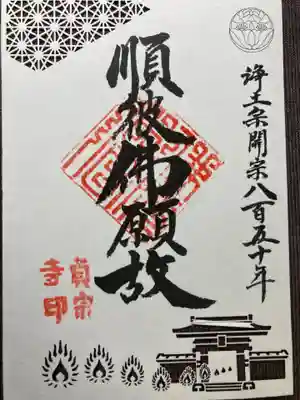 浄土宗開宗八百五十年
順彼佛願故
貞宗
寺印